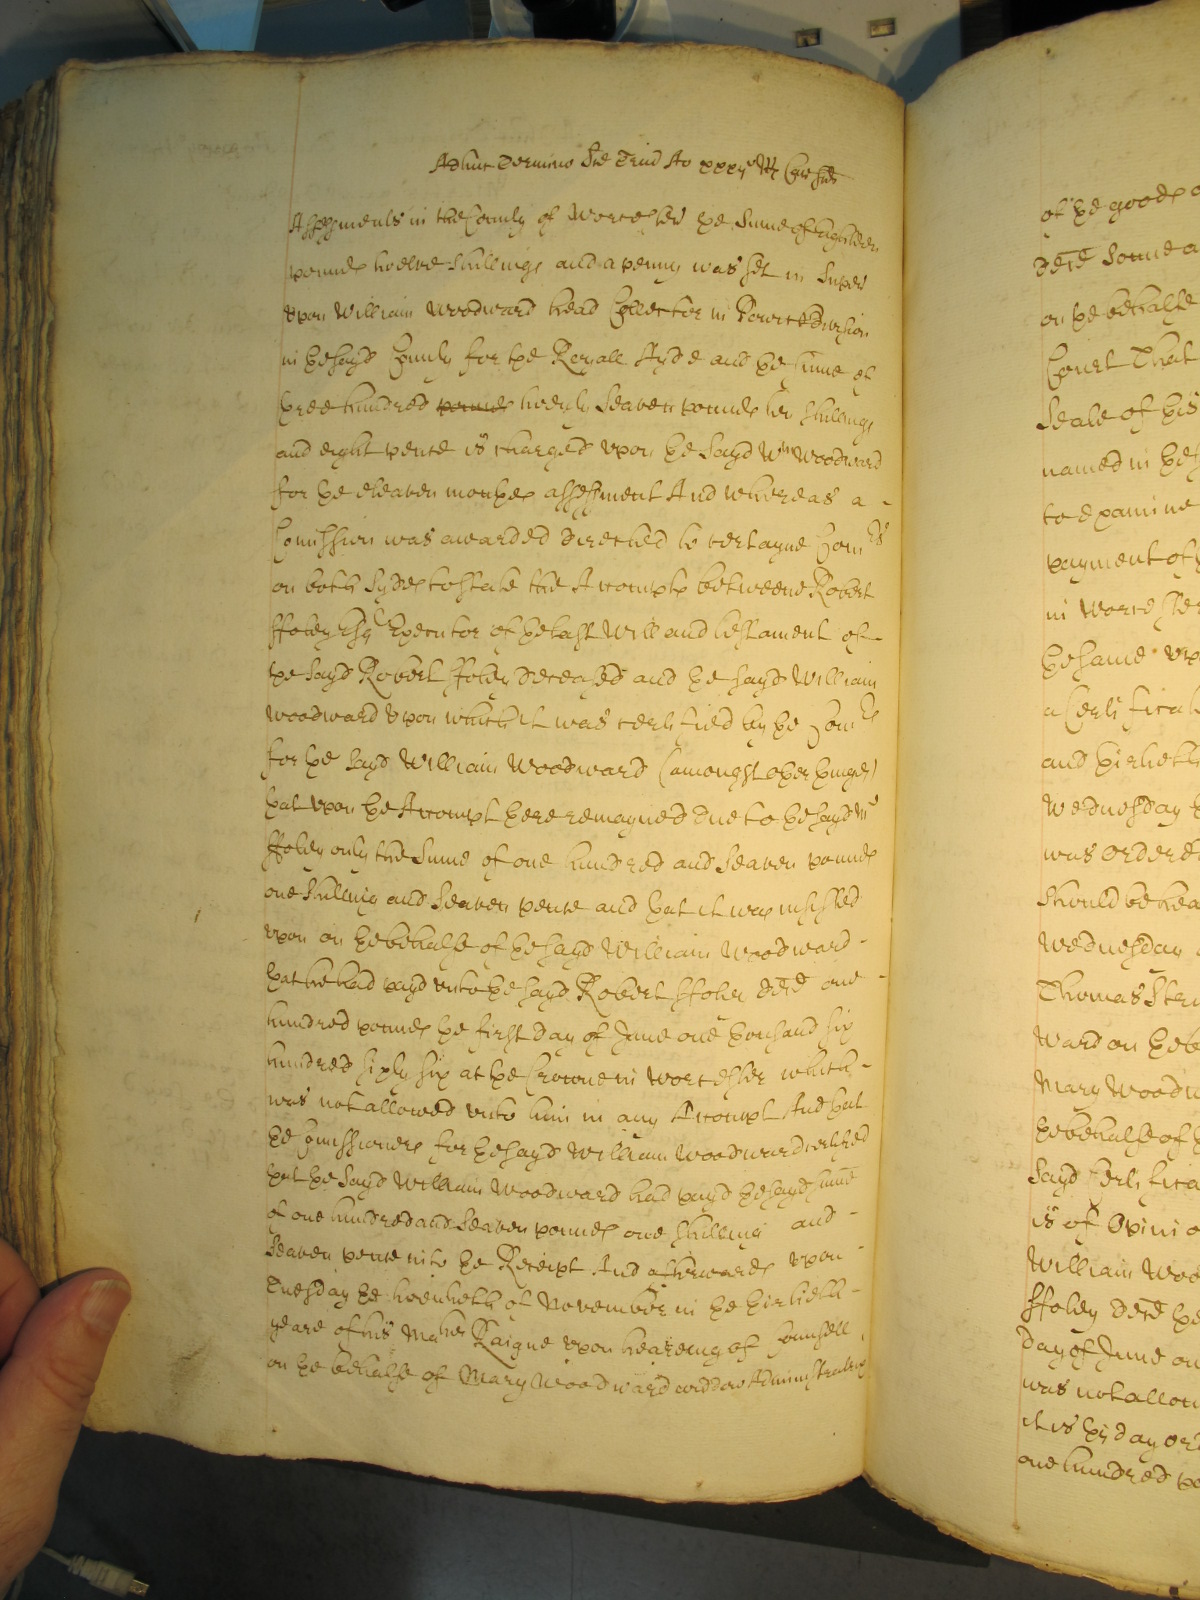 Adhuc Termino Sce Trin Ao xxxj R Car Scdi
Assessments in the County of Worcester ye Sume of Eighteen
pounds twelve shillings and a penny was set in Super
vpon William Woodward head Collector in Powicke division
in ye sayd County for ye Royall Ayde and ye sume of
three hundred pounds twenty Seaven pounds ten shillings
and eight pence is charged vpon ye Sayd Wm Woodward
for ye eleaven monthes assessment And whereas a -
Comission was awarded directed to certayne Comrs
on both Sydes to State the Accompts betweene Robert
ffoley Esq Executor of ye last Will and testament of -
ye Sayd Robert ffoley deceased and ye sayd William
Woodward Vpon which it was certified by ye Comrs
for ye Sayd William Woodward (amongst other thinges)
yat vpon ye Accompt there remayned due to ye sayd Mr
ffoley only the Sume of one hundred and Seaven pounds
one Shilling and Seaven pence and yat it was insisted
vpon on ye behalfe of ye sayd William Woodward -
yat he had payd vnto ye sayd Robert ffoley decd one -
hundred pounds ye first day of June one thousand six
hundred sixty six at ye Crowne in Worcester which -
was not allowed vnto him in any Accompt And yat
ye Comissioners for ye sayd William Woodward certifyed
yat ye Sayd William Woodward had payd ye sayd sume
of one hundred and Seaven pounds one shilling and -
Seaven pence into ye Receipt And afterwards vpon -
Tuesday ye twentieth of November in ye thirtieth -
yeare of his Maties Raigne vpon heareing of Counsell
on ye behalfe of Mary Woodward widdow Administratrix
of ye goods
decd Some a
on ye behalfe
Court That
Seale of his
named in ye
to examine
payment of
in Worcester
ye same vp
a Certificat
and thirtieth
Wednesday
was Ordered
Should be hea
Wednesday
Thomas Stre
ward on ye b
Mary Woodw
ye behalfe of
Sayd Certifica
is of Opinio
William Woo
ffoley decd ye
day of June on
was not allow
it is this day ord
one hundred po